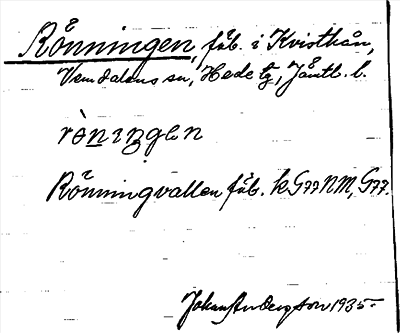 Rönningen, fäb. i Kvistkån,
Vemdalens sn, Hede tg, Jämtl. l.
rö̀niŋgen
Rönningvallen fäb. k G77 NM, G77.
Johan Anderson 1935